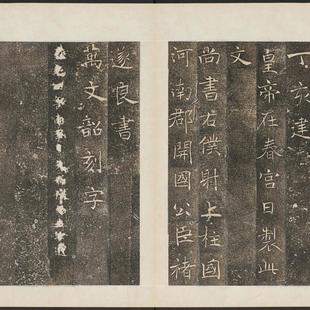 丁亥建
皇帝在春宫日製此
文
尚書右僕射上柱國
河南郡開國公臣褚
遂良書
萬文韶刻字